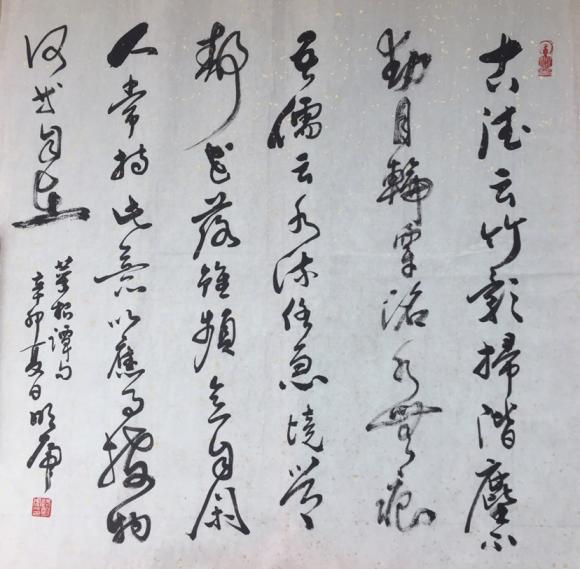 古德云竹影掃階塵不
動月輪穿沼水無痕
吾儒云水流任急境常
靜花落雖頻意自閑
人常持此意以應事接物
何等自在
菜根譚句
辛卯夏日明